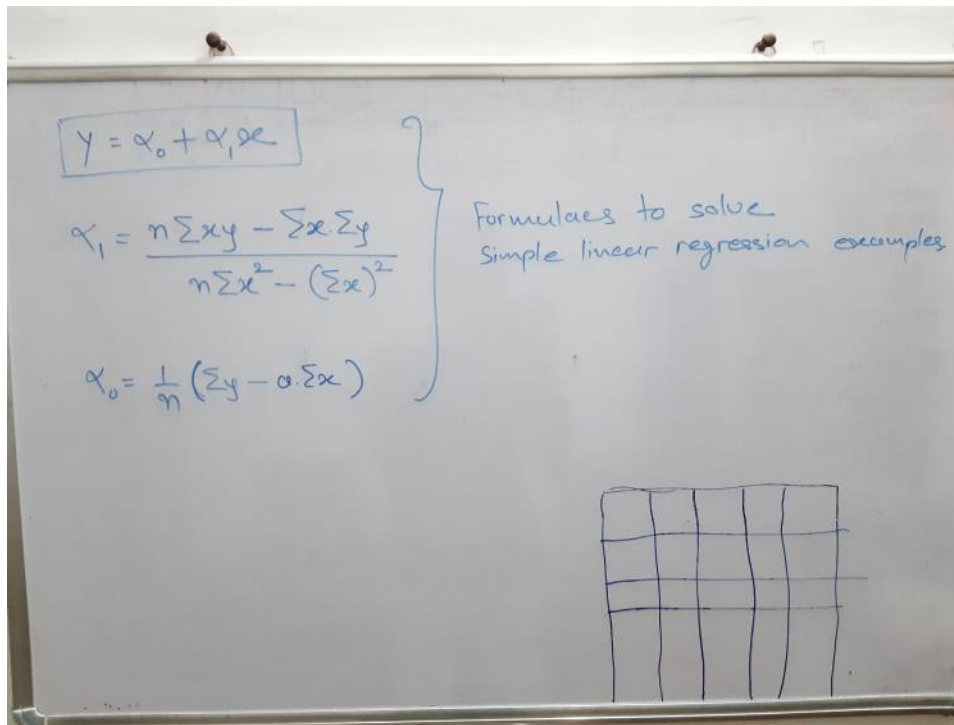 Y = α₀ + α₁x
α₁ = nΣxy − Σx.Σy / nΣx² − (Σx)²
α₀ = 1/n (Σy − a.Σx)
Formulaes to solve
simple linear regression examples